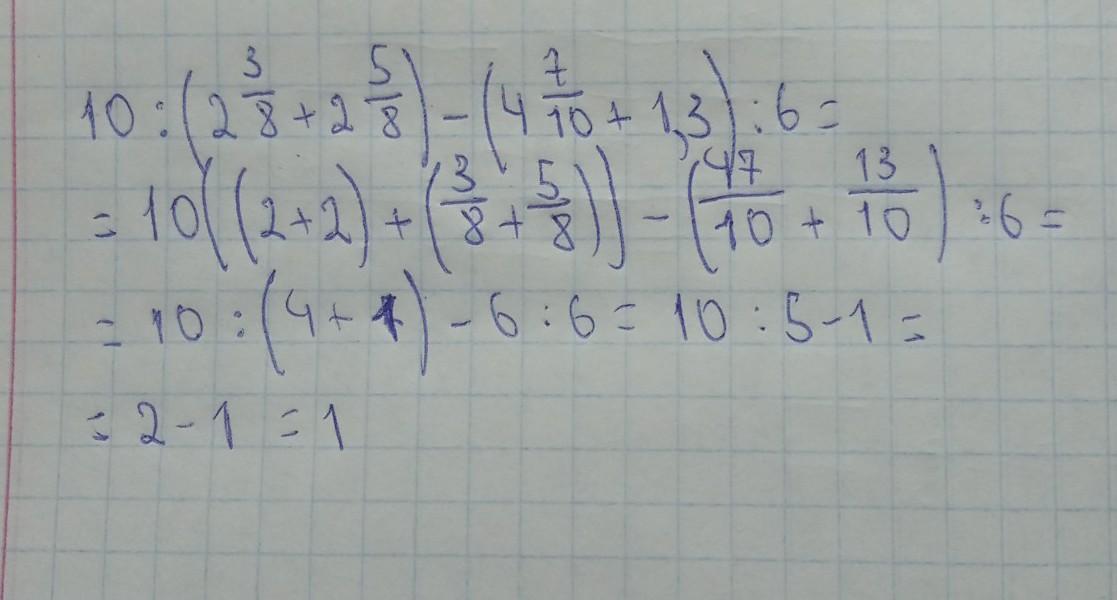 10 : (2 3/8 + 2 5/8) - (4 7/10 + 1,3) : 6 =
= 10((2+2) + (3/8 + 5/8)) - (47/10 + 13/10) : 6 =
= 10 : (4 + 1) - 6 : 6 = 10 : 5 - 1 =
= 2 - 1 = 1